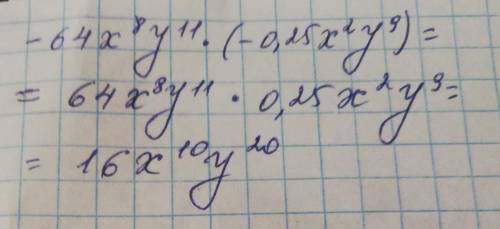 -64x⁸y¹¹·(-0,25x²y⁹)=
= 64x⁸y¹¹ · 0,25x²y⁹=
= 16x¹⁰y²⁰